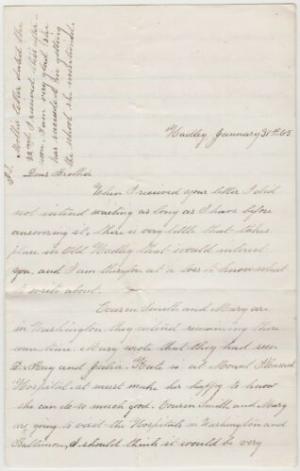 Hadley January 31st 65
Dear Brother
When I received your letter I did
not intend waiting as long as I have before
answering it, there is very little that takes
place in Old Hadley that would interest
you, and I am therefor at a loss to know what
to write about.
Cousin Smith and Mary are
in Washington they intend remaining there
some time. Mary wrote that they had seen
Dr King and Julia. Kate is at Mount Pleasant
Hospital. it must make her happy to know
she can do so much good. Cousin Smith and Mary
are going to visit the Hospitals in Washington and
Baltimore, I should think it would be very
P.S. Mollie letter dated the
22nd I received this after-
noon. I am very glad she
has succeeded in getting
the school she mentioned.